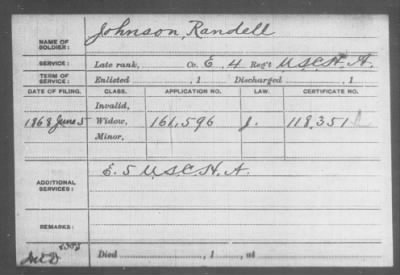 NAME OF SOLDIER: Johnson, Randell
SERVICE: Late rank, Co. E. 4 Reg't U.S.C.H.A.
TERM OF SERVICE: Enlisted , 1 Discharged , 1
DATE OF FILING. CLASS. APPLICATION NO. LAW. CERTIFICATE NO.
Invalid,
1868 June 5 Widow, 161,596 J. 118,351
Minor,
ADDITIONAL SERVICES: E. 5 U.S.C.H.A.
REMARKS:
Died , 1 , at